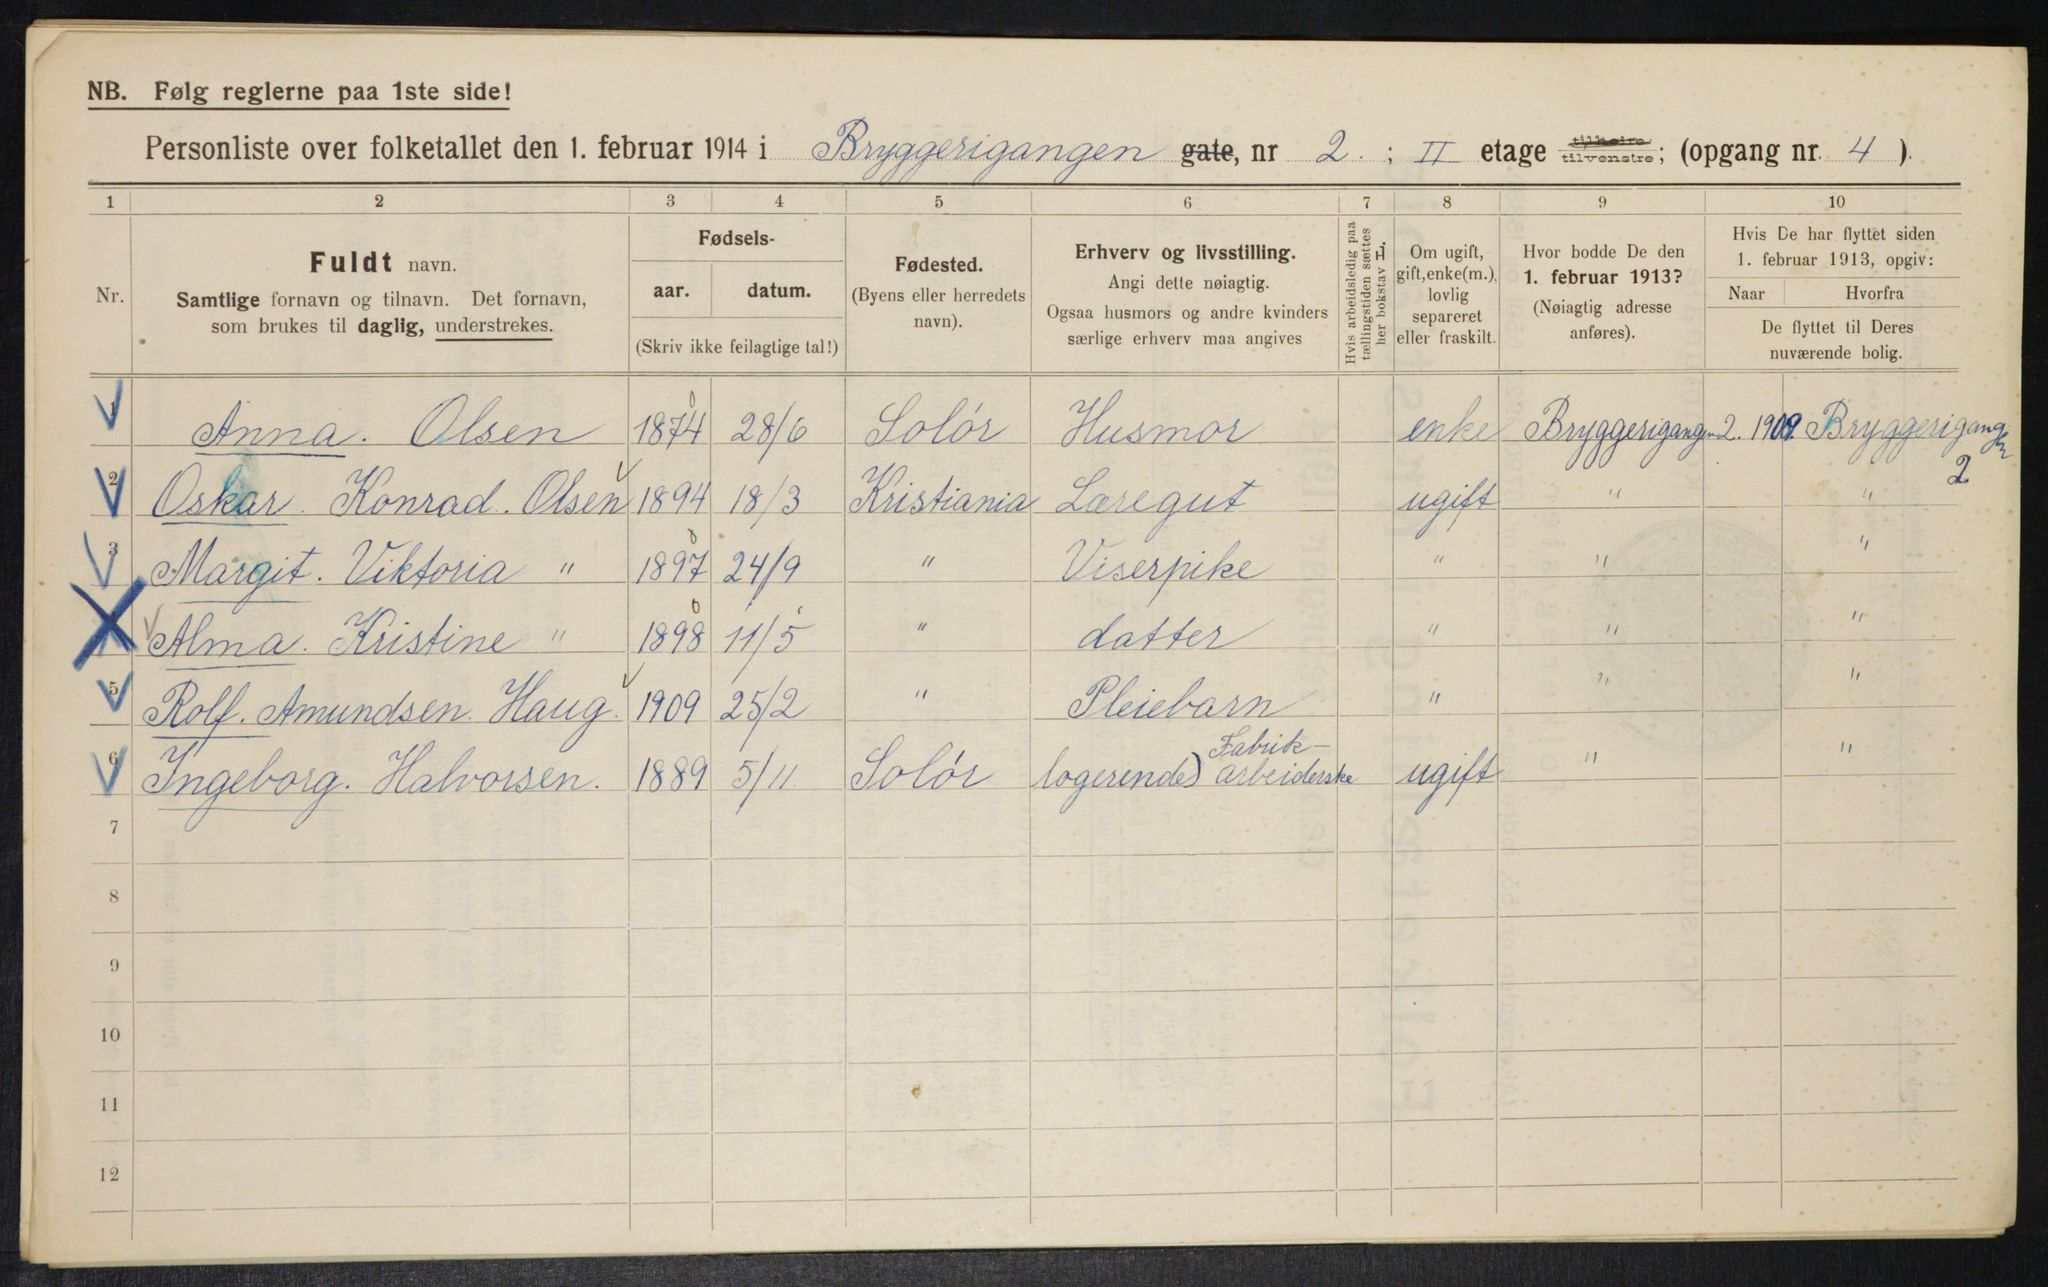 NB. Følg reglerne paa 1ste side!
Personliste over folketallet den 1. februar 1914 i Bryggerigangen gate, nr 2. ; II etage tilhøire tilvenstre; (opgang nr. 4 ).
1 2 3 4 5 6 7 8 9 10
Nr.
Fuldt navn.
Samtlige fornavn og tilnavn. Det fornavn,
som brukes til daglig, understrekes.
Fødsels-
aar. datum.
(Skriv ikke feilagtige tal!)
Fødested.
(Byens eller herredets
navn).
Erhverv og livsstilling.
Angi dette nøiagtig.
Ogsaa husmors og andre kvinders
særlige erhverv maa angives
Hvis arbeidsledig paa
tællingstiden sættes
her bokstav L.
Om ugift,
gift, enke(m.),
lovlig
separeret
eller fraskilt.
Hvor bodde De den
1. februar 1913?
(Nøiagtig adresse
anføres).
Hvis De har flyttet siden
1. februar 1913, opgiv:
Naar Hvorfra
De flyttet til Deres
nuværende bolig.
1 Anna. Olsen 1874 28/6 Solør Husmor enke Bryggerigangen 2. 1909. Bryggerigangen 2
2 Oskar. Konrad. Olsen 1894 18/3 Kristiania Læregut ugift " "
3 Margit. Viktoria " 1897 24/9 " Viserpike " " "
Alma. Kristine " 1898 11/5 " datter " " "
5 Rolf. Amundsen. Haug. 1909 25/2 " Pleiebarn " " "
6 Ingeborg. Halvorsen. 1889 5/11 Solør logerende) Fabrik-arbeiderske ugift " "
7
8
9
10
11
12